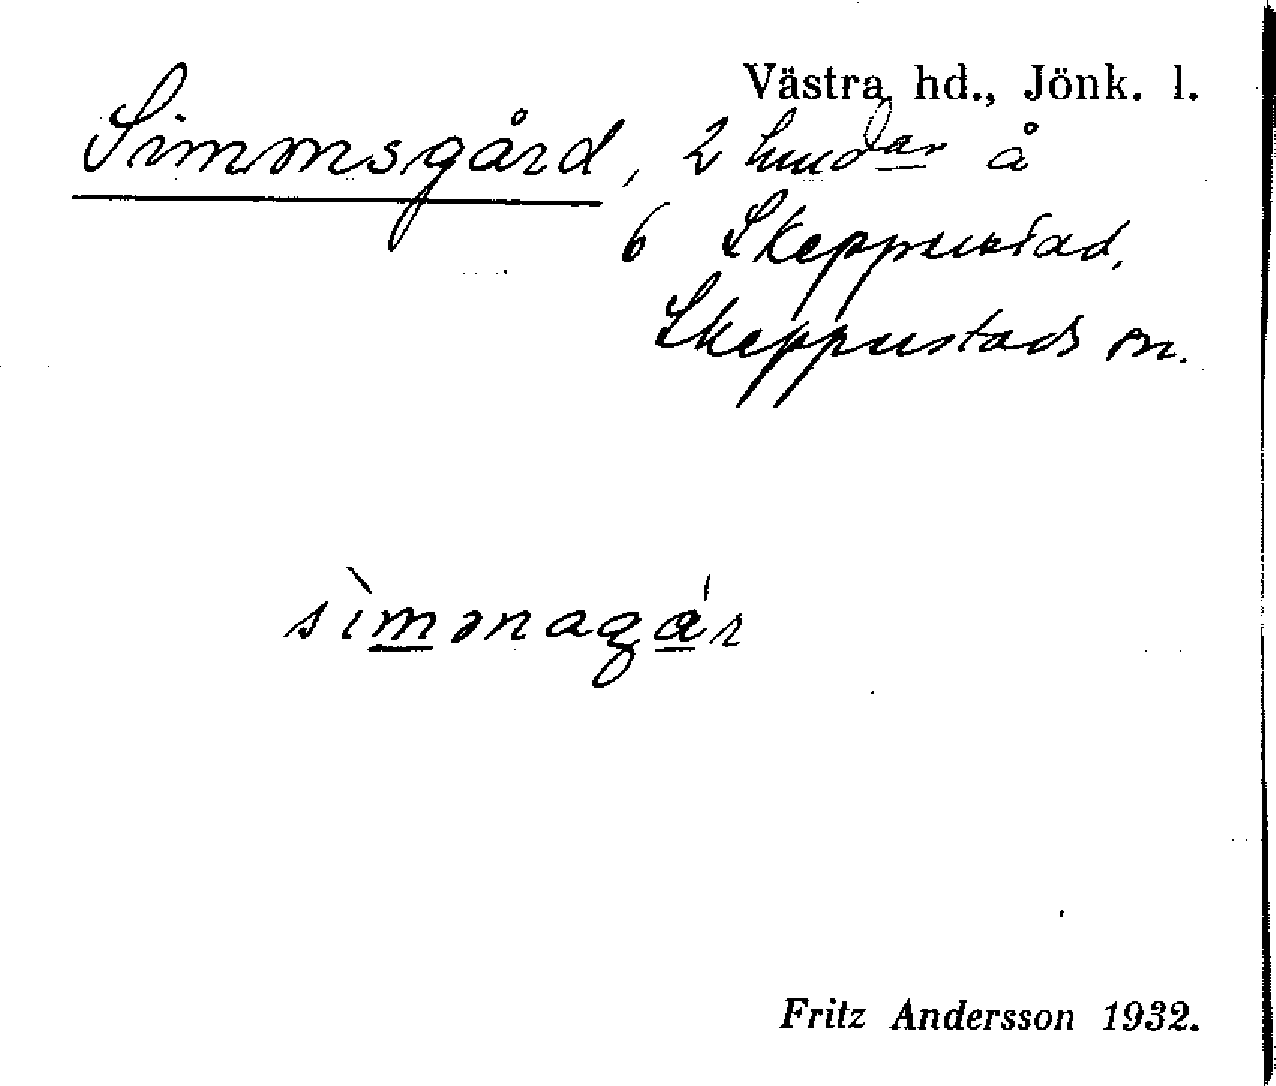 Västra hd., Jönk. l.
Simonsgård, 2 hudar å
6 Skeppustad,
Skeppustads sn.
sìmənagár
Fritz Andersson 1932.